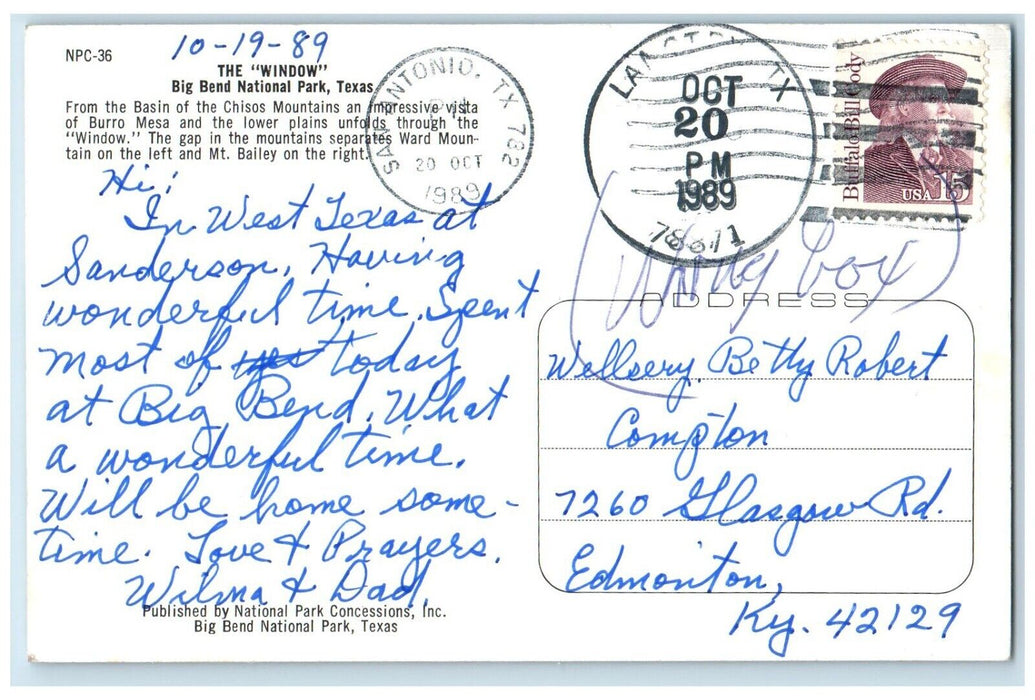 NPC-36
10-19-89
THE "WINDOW"
Big Bend National Park, Texas
From the Basin of the Chisos Mountains an impressive vista
of Burro Mesa and the lower plains unfolds through the
"Window." The gap in the mountains separates Ward Moun-
tain on the left and Mt. Bailey on the right.
Hi!
In West Texas at
Sanderson. Having
wonderful time. Spent
most of today
at Big Bend. What
a wonderful time.
Will be home some-
time. Love & Prayers.
Wilma & Dad.
Published by National Park Concessions, Inc.
Big Bend National Park, Texas
SAN ANTONIO, TX 782
20 OCT
1989
TX
OCT
20
PM
1989
Buffalo Bill Cody
USA 15
Cox
ADDRESS
Betty Robert
Compton
7260 Glasgow Rd.
Edmonton,
Ky. 42129